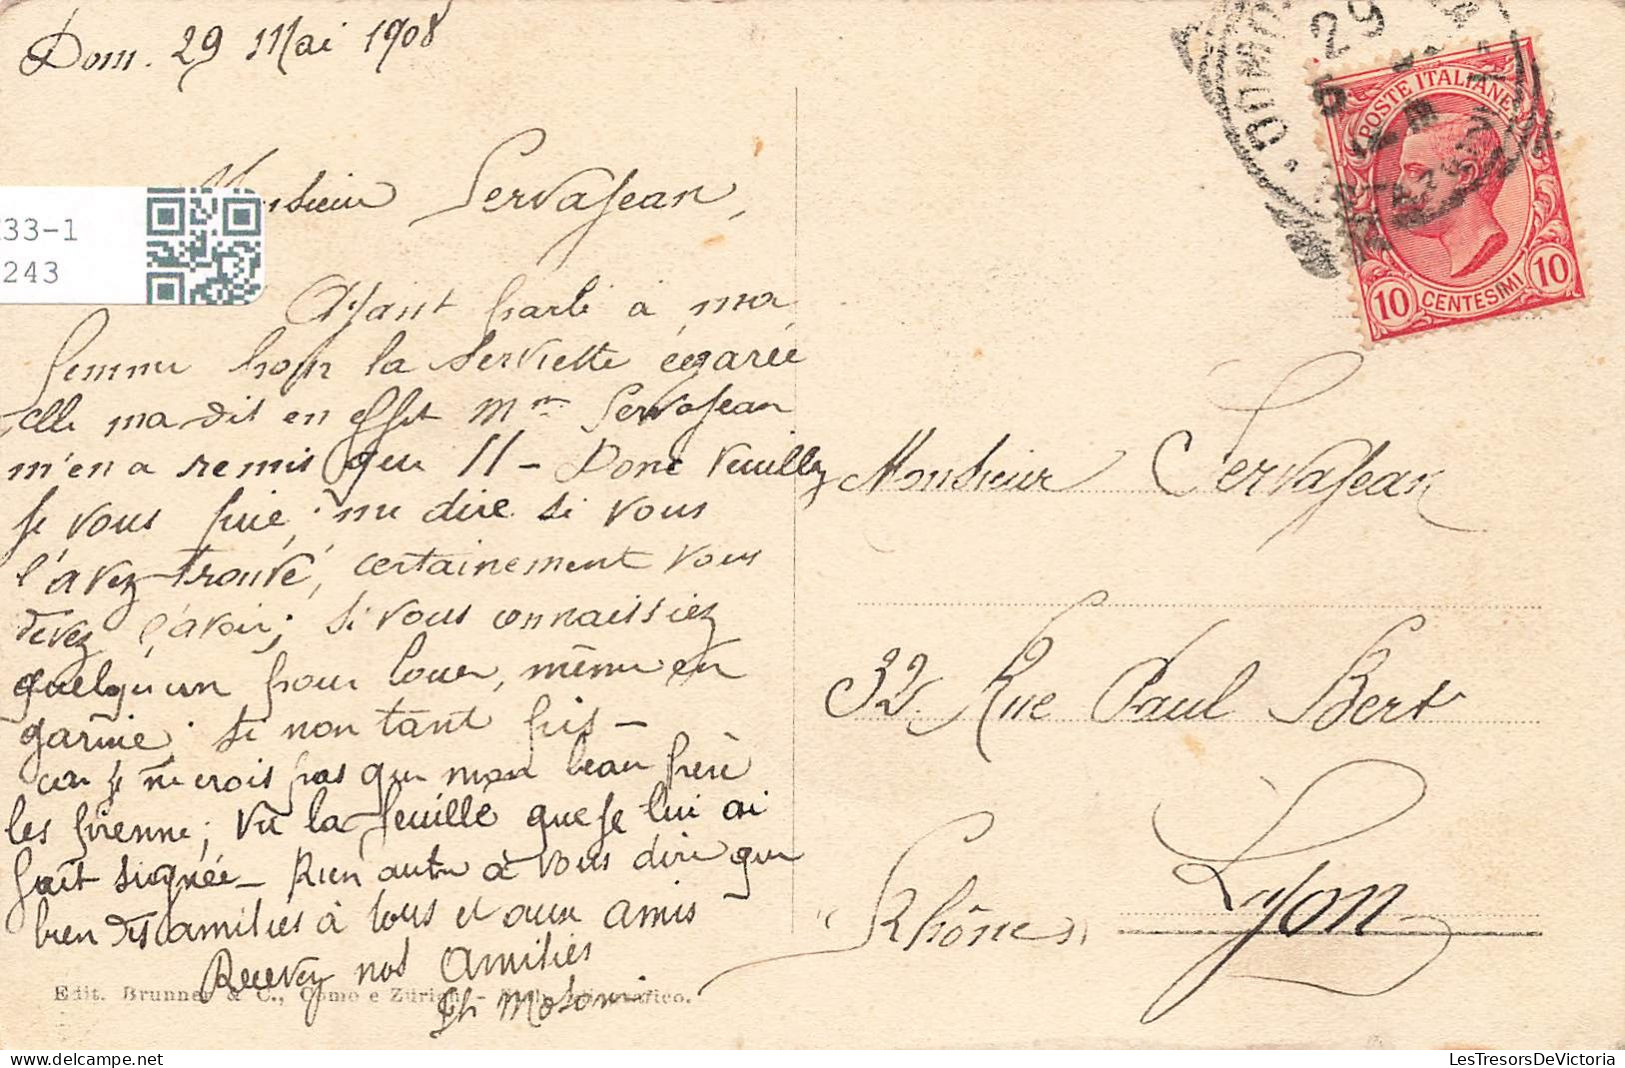 Dom. 29 Mai 1908
Monsieur Servajean,
Ayant parlé à ma
femme pour la serviette égarée
elle ma dit en effet Mme Servajean
m'en a remis que 11 - Donc veuillez
je vous prie, me dire si vous
l'avez trouvé, certainement vous
devez l'avoir; si vous connaissiez
quelqu'un pour louer, même en
garnie; si non tant pis -
car je ne crois pas que mon beau frère
les prenne; vu la feuille que je lui ai
fait signée - Rien autre à vous dire que
bien des amitiés à tous et aux amis
Recevez nos amitiés
Monsieur Servajean
32 Rue Paul Bert
Lyon
(Rhône)
POSTE ITALIANE
10 CENTESIMI 10
29
33-1
243
Edit. Brunner & C., Como e Zürich -
LesTresorsDeVictoria